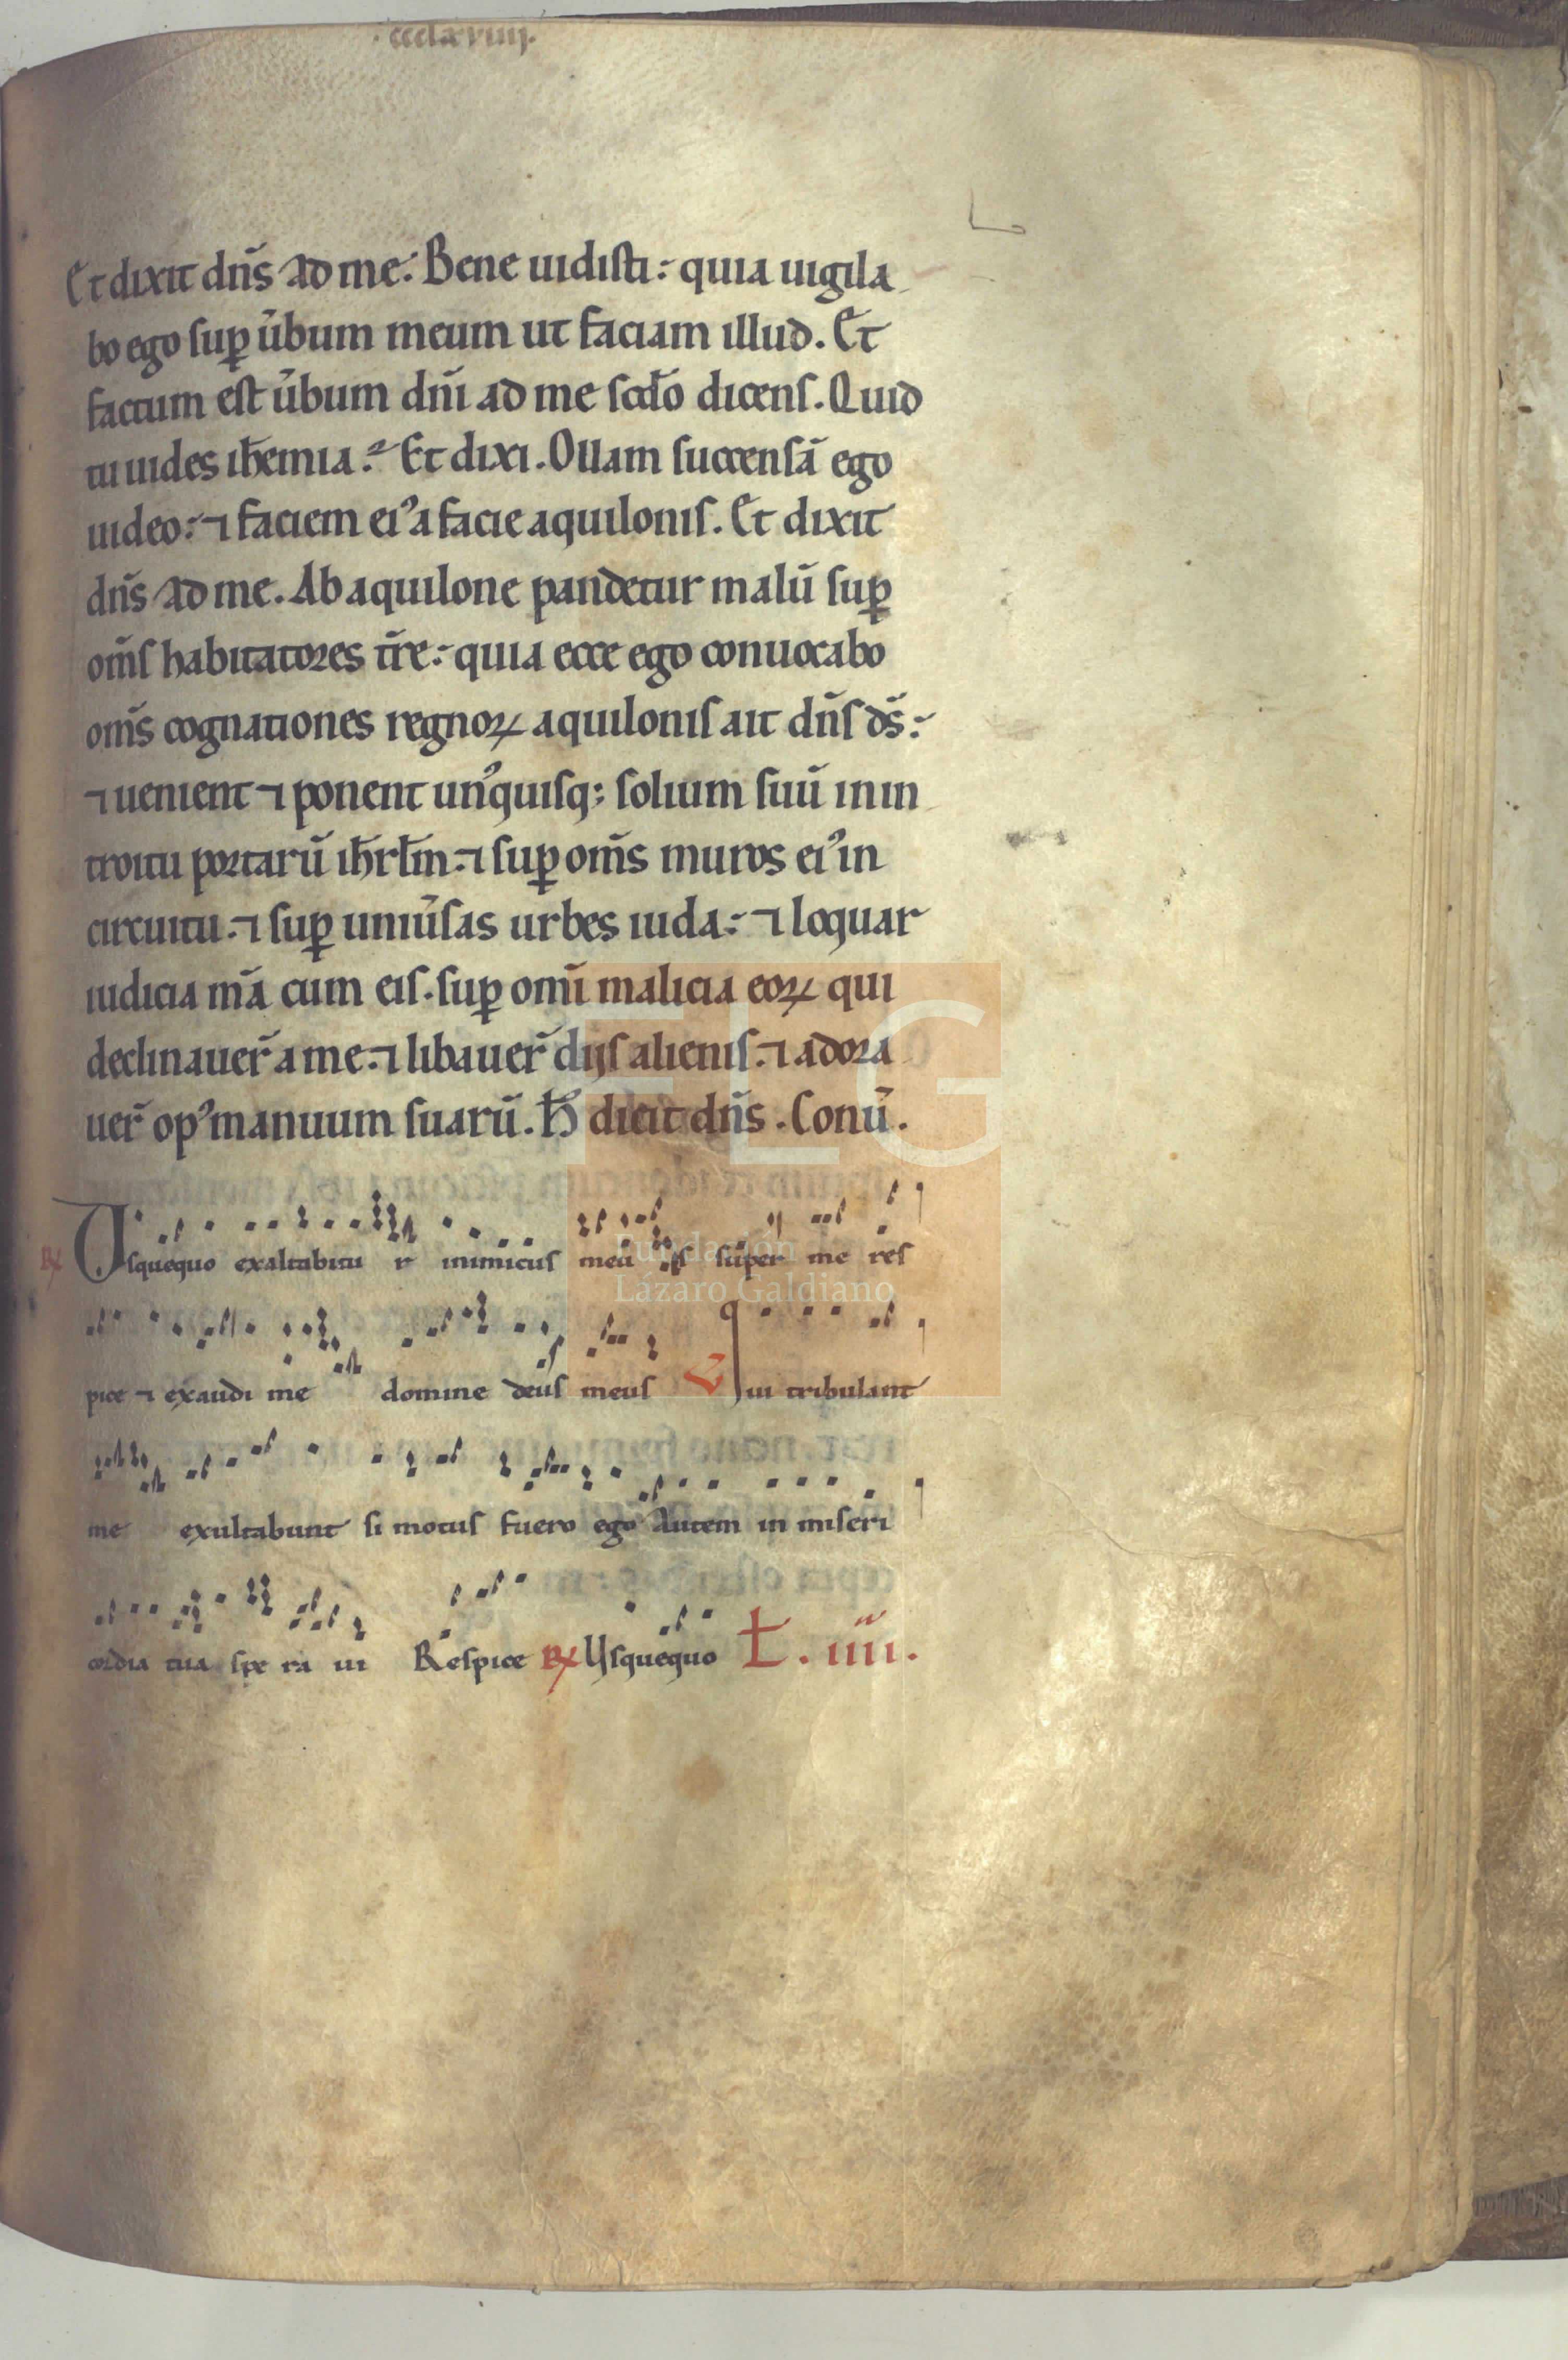 .ccclxviiij.
Et dixit dn̄s ad me. Bene uidisti: quia uigila
bo ego suꝑ ūbum meum ut faciam illud. Et
factum est ūbum dn̄i ad me scd̄o dicens. Quid
tu uides ih̄emia? Et dixi. Ollam succensā ego
uideo: ⁊ faciem eiꝰ a facie aquilonis. Et dixit
dn̄s ad me. Ab aquilone pandetur malū suꝑ
om̄s habitatores t̄re: quia ecce ego conuocabo
om̄s cognationes regnoꝝ aquilonis ait dn̄s ds̄:
⁊ uenient ⁊ ponent unꝰquisq; solium suū in in
troitu portarū ih̄rl̄m ⁊ suꝑ om̄s muros eiꝰ in
circuitu. ⁊ suꝑ uniūsas urbes iuda: ⁊ loquar
iudicia m̄a cum eis. suꝑ om̄i malicia eoꝝ qui
declinauer̄ a me. ⁊ libauer̄ dijs alienis. ⁊ adora
uer̄ opꝰ manuum suarū. H̄ dicit dn̄s. Conū.
℞ Usquequo exaltabitu r inimicus meu s super me res
pice ⁊ exaudi me domine deus meus V Qui tribulant
me exultabunt si motus fuero ego autem in miseri
cordia tua spe ra ui Respice ℞ Usquequo Ł. iiii.
FLG
Fundación
Lázaro Galdiano